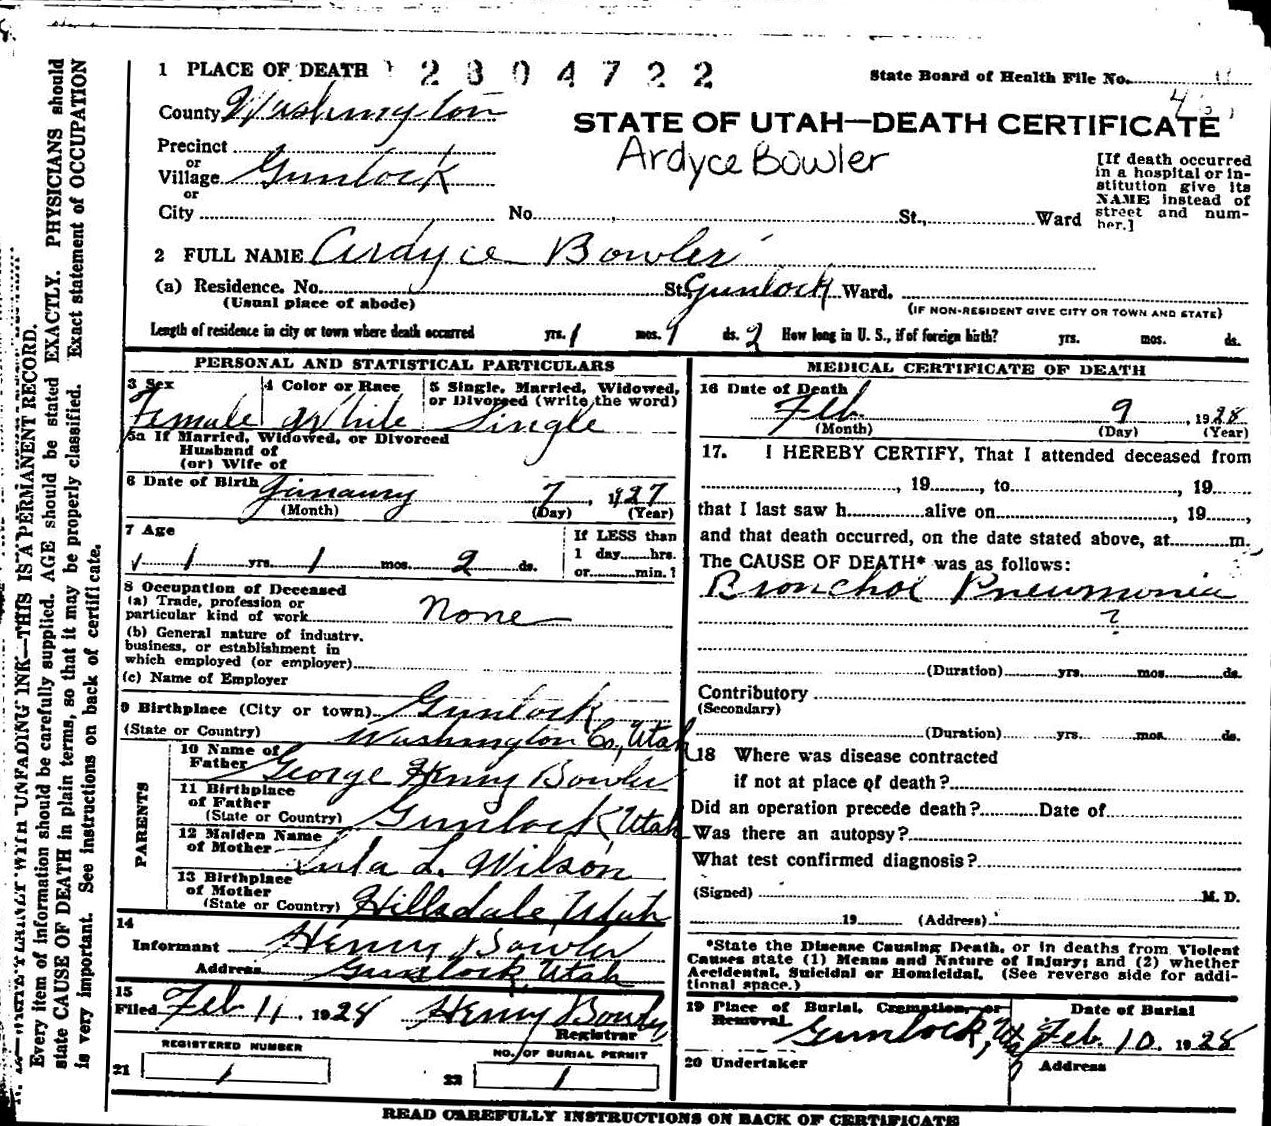 1 PLACE OF DEATH 2304722
State Board of Health File No.
County Washington
STATE OF UTAH—DEATH CERTIFICATE
Ardyce Bowler
Precinct
or
Village Gunlock
or
City No. St., Ward
[If death occurred
in a hospital or in-
stitution give its
NAME instead of
street and num-
ber.]
2 FULL NAME Ardyce Bowler
(a) Residence. No. St. Gunlock Ward.
(Usual place of abode) (IF NON-RESIDENT GIVE CITY OR TOWN AND STATE)
Length of residence in city or town where death occurred yrs. 1 mos. 1 ds. 2 How long in U. S., if of foreign birth? yrs. mos. ds.
PERSONAL AND STATISTICAL PARTICULARS
3 Sex 4 Color or Race 5 Single, Married, Widowed,
or Divorced (write the word)
Female White Single
5a If Married, Widowed, or Divorced
Husband of
(or) Wife of
6 Date of Birth Janaury 7, 1927
(Month) (Day) (Year)
7 Age If LESS than
1 day hrs.
1 yrs. 1 mos. 2 ds. or min.?
8 Occupation of Deceased
(a) Trade, profession or
particular kind of work None
(b) General nature of industry,
business, or establishment in
which employed (or employer)
(c) Name of Employer
9 Birthplace (City or town) Gunlock
(State or Country) Washington Co., Utah
PARENTS
10 Name of
Father George Henry Bowler
11 Birthplace
of Father
(State or Country) Gunlock Utah
12 Maiden Name
of Mother Lula L. Wilson
13 Birthplace
of Mother
(State or Country) Hillsdale, Utah
14
Informant Henry Bowler
Address Gunlock, Utah
15
Filed Feb 11, 1928 Henry Bowler
Registrar
REGISTERED NUMBER NO. OF BURIAL PERMIT
21 1 22 1
MEDICAL CERTIFICATE OF DEATH
16 Date of Death
Feb. 9, 1928
(Month) (Day) (Year)
17. I HEREBY CERTIFY, That I attended deceased from
, 19 , to , 19
that I last saw h alive on , 19 ,
and that death occurred, on the date stated above, at m.
The CAUSE OF DEATH* was as follows:
Bronchol Pneumonia
?
(Duration) yrs. mos. ds.
Contributory
(Secondary)
(Duration) yrs. mos. ds.
18 Where was disease contracted
if not at place of death?
Did an operation precede death? Date of
Was there an autopsy?
What test confirmed diagnosis?
(Signed) M. D.
19 (Address)
*State the Disease Causing Death, or in deaths from Violent
Causes state (1) Means and Nature of Injury; and (2) whether
Accidental, Suicidal or Homicidal. (See reverse side for addi-
tional space.)
19 Place of Burial, Cremation, or
Removal Date of Burial
Gunlock, Ut Feb. 10, 1928
20 Undertaker Address
READ CAREFULLY INSTRUCTIONS ON BACK OF CERTIFICATE
WITH UNFADING INK—THIS IS A PERMANENT RECORD.
Every item of information should be carefully supplied. AGE should be stated EXACTLY. PHYSICIANS should
state CAUSE OF DEATH in plain terms, so that it may be properly classified. Exact statement of OCCUPATION
is very important. See instructions on back of certificate.